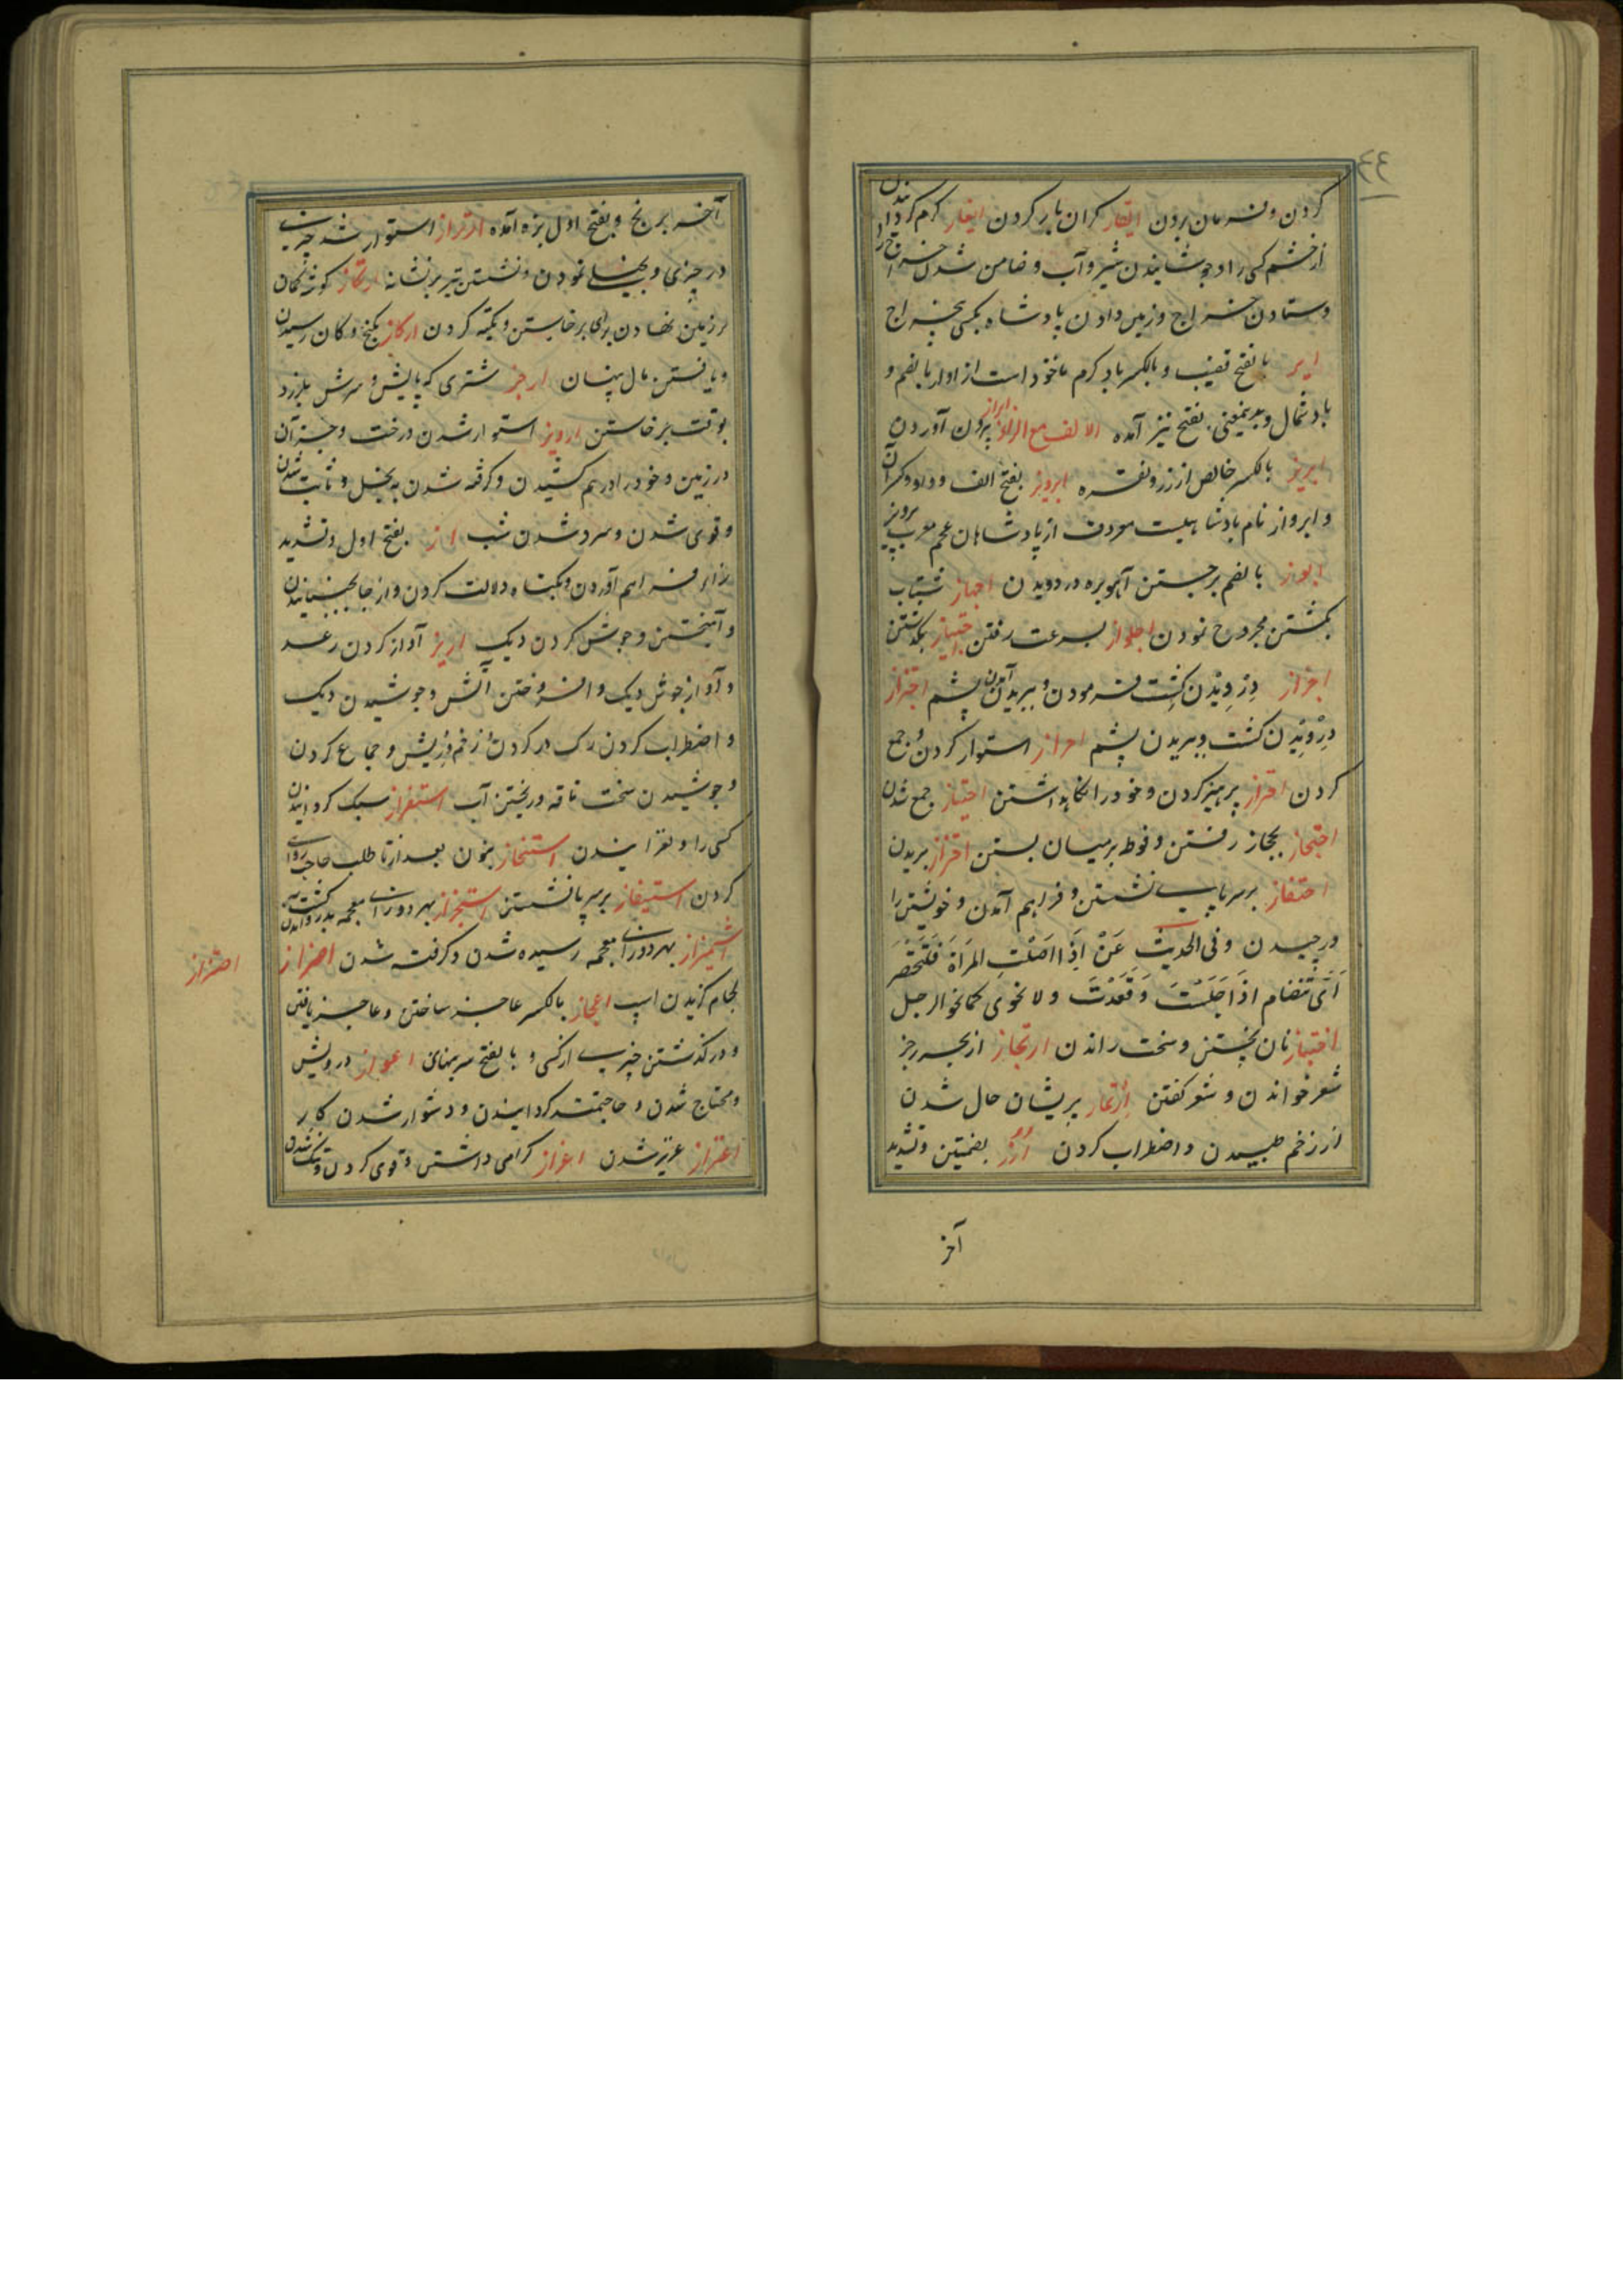 کردن و فرمان بردن ایقار کران بار کردن ایغار کرم کردانیدن
از خشم کسی را و جوشانیدن شیر و آب و ضامن شدن خراج را
وستادن خراج و زمین دادن پادشاه بکسی بخراج
ایر بالفتح قضیب و بالکسر باد کرم ماخوذ است از اوار بالضم و
باد شمال و بدینمعنی بفتح نیز آمده الالف مع الزاء ابراز برون آوردن
ابریز بالکسر خالص از زر و نقره ابرویز بفتح الف و واو و کسر آن
و ابرواز نام پادشاهیست معروف از پادشاهان عجم معرب پرویز
ابواز بالضم برجستن آهو بره در دویدن اجهاز شتاب
بکشتن مجروح نمودن اجلواز بسرعت رفتن اجتیاز بکذشتن
اجزاز درویدن کشت فرمودن و ببریدن آمدن پشم اجتزاز
درویدن کشت و ببریدن پشم احراز استوار کردن و جمع
کردن احتراز پرهیز کردن و خود را نکاهداشتن احتیاز جمع شدن
احتجاز بحجاز رفتن و فوطه بر میسان بستن احتزاز بریدن
احتفاز برسرپای نشستن و فراهم آمدن و خویشتن را
ورچیدن و فی الحدیث عَنْ اِذَا صَلَّتِ المَرأَةَ فَلْتَحْتَفِز
اَیْ تتضام اذَا جَلَسْتَ وَقَعَدْتَ ولا تخوی کما یخو الرجل
اختباز نان پختن و سخت راندن ارتجاز از بحر رجز
شعر خواندن و شعر کفتن ارتماز پریشان حال شدن
از زخم طپیدن و اضطراب کردن اُرُز بضمتین و تشدید
آخر
آخر برنج و بفتح اول بزه آمده ارتزاز استوار شدن چیزی
در چیزی و بخیلی نمودن و نشستن تیر بر نشانه ارتکاز کوشه کمان
بر زمین نهادن برای برخاستن و تکیه کردن ارکاز بکنج و کان رسیدن
و یافتن مال پنهان ارجز شتری که پایش و سرش بلرزد
بوقت برخاستن اروز استوار شدن درخت و جز آن
در زمین و خود را درهم کشیدن و کرفته شدن به بخل و ثابت شدن
و قوی شدن و سرد شدن شب از بفتح اول و تشدید
زا بر فراهم آوردن و بکناه دلالت کردن و از جا بجنبانیدن
و آمیختن و جوش کردن دیک ازیز آواز کردن رعد
و آواز جوش دیک و افروختن آتش و جوشیدن دیک
و اضطراب کردن رک در کردن زخم و ریش و جماع کردن
و جوشیدن سخت ناقه و ریختن آب استفزاز سبک کردانیدن
کسی را و لغزانیدن استنجاز بنون بعد از تا طلب حاجت روای
کردن استیفاز برسرپا نشستن استجزاز بهر دو زای معجمه بدرو آمدن کشت
اشمیزاز بهر دو زای معجمه رسیده شدن و کرفته شدن اضزاز
اضزاز
لجام کزیدن اسپ اعجاز بالکسر عاجز ساختن و عاجز یافتن
و درکذشتن چیزی از کسی و بالفتح سرینهای اعواز درویش
و محتاج شدن و حاجتمند کردانیدن و دشوار شدن کار
اعتزاز عزیز شدن اعزاز کرامی داشتن و قوی کردن و تنک شدن